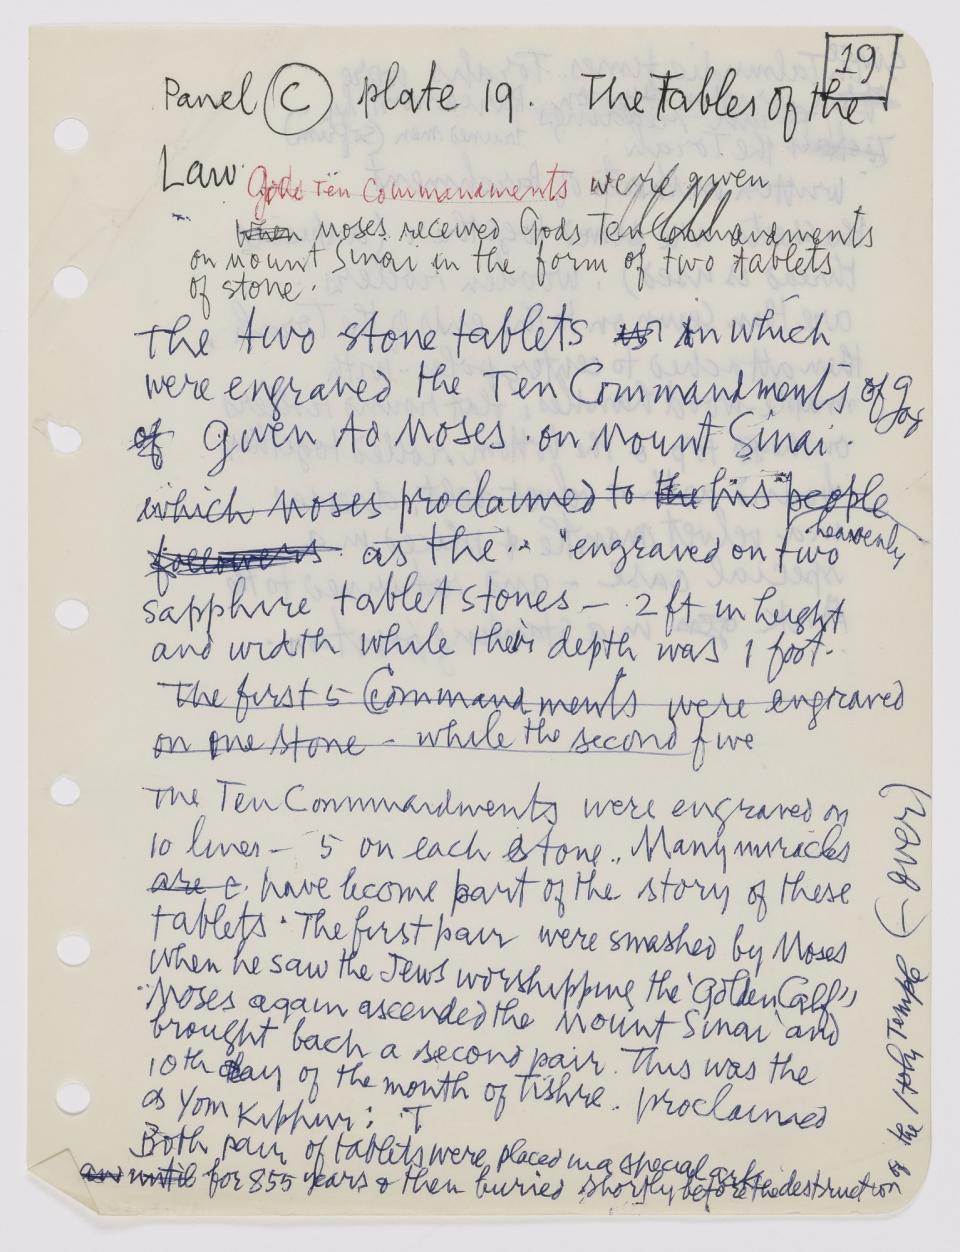 19
Panel C plate 19. The Tables of the
Law. Gods Ten Commandments were given
when Moses received Gods Ten Commandments
on Mount Sinai in the form of two tablets
of stone.
The two stone tablets in which
were engraved the Ten Commandments of God
of given to Moses on Mount Sinai.
which Moses proclaimed to the his people
followers as the "engraved on two
heavenly
sapphire tablet stones – 2 ft in height
and width while their depth was 1 foot.
The first 5 Commandments were engraved
on one stone – while the second five
The Ten Commandments were engraved on
10 lines – 5 on each stone. Many miracles
are have become part of the story of these
tablets. The first pair were smashed by Moses
when he saw the Jews worshipping the "Golden Calf"
Moses again ascended the Mount Sinai and
brought back a second pair. This was the
10th day of the month of Tishre. proclaimed
as Yom Kippur: T
Both pair of tablets were placed in a special ark
and until for 855 years & then buried shortly before the destruction
of the Holy Temple (→ over)